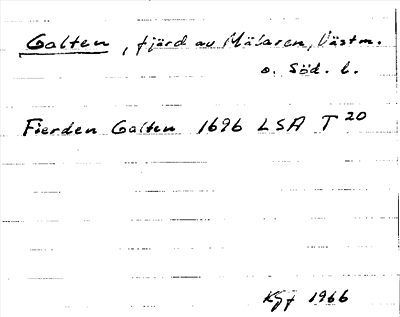 Galten, fjärd av Mälaren, Västm.
o. Söd. l.
Fierden Galten 1696 LSA T 20
KGf 1966